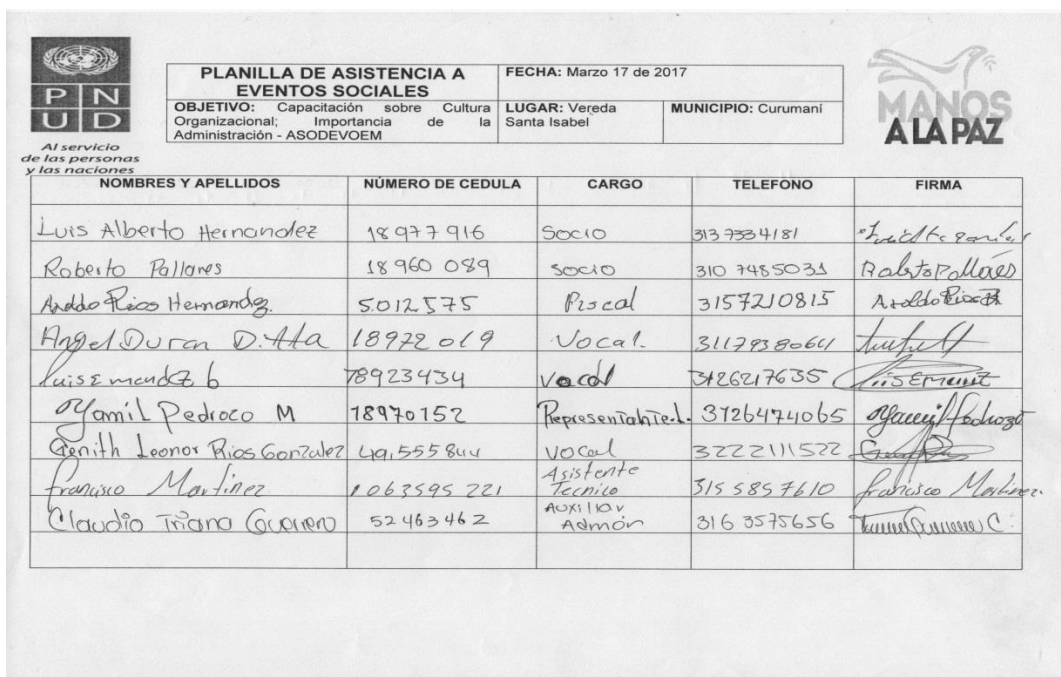 PNUD
Al servicio
de las personas
y las naciones
PLANILLA DE ASISTENCIA A
EVENTOS SOCIALES
FECHA: Marzo 17 de 2017
OBJETIVO: Capacitación sobre Cultura
Organizacional; Importancia de la
Administración - ASODEVOEM
LUGAR: Vereda
Santa Isabel
MUNICIPIO: Curumaní
MANOS
A LA PAZ
NOMBRES Y APELLIDOS NÚMERO DE CEDULA CARGO TELEFONO FIRMA
Luis Alberto Hernandez 18977916 Socio 3137334181
Roberto Pallares 18960089 socio 3107485031 Roberto Pallares
Aroldo Rios Hernandez 5.012575 Fiscal 3157210815 Aroldo Rios H
Angel Duran Ditta 18972019 Vocal. 3117938064
Luis E mendez b 78923434 vocal 3126217635
Yamil Pedrozo M 18970152 Representante.L. 3126474065 Yamil Pedrozo
Cenith Leonor Rios Gonzalez 49.555844 vocal 3222111522
francisco Martinez 1063595221 Asistente Tecnico 3155857610 francisco Martinez.
Claudia Triana Guerrero 52463462 Auxiliar Admón 3163575656